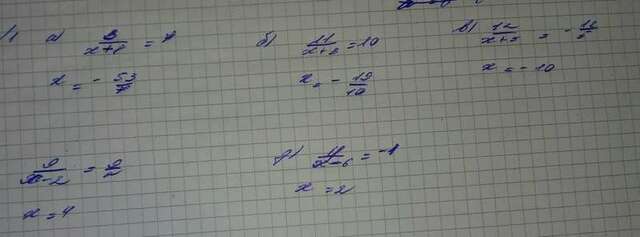 а) 3/(x+8) = 7
x = - 53/7
б) 11/(x+3) = 10
x = - 19/10
в) 12/(x+5) = -
x = - 10
9/(x-2) = 9/2
x = 4
д) 4/(x-6) = -1
x = 2